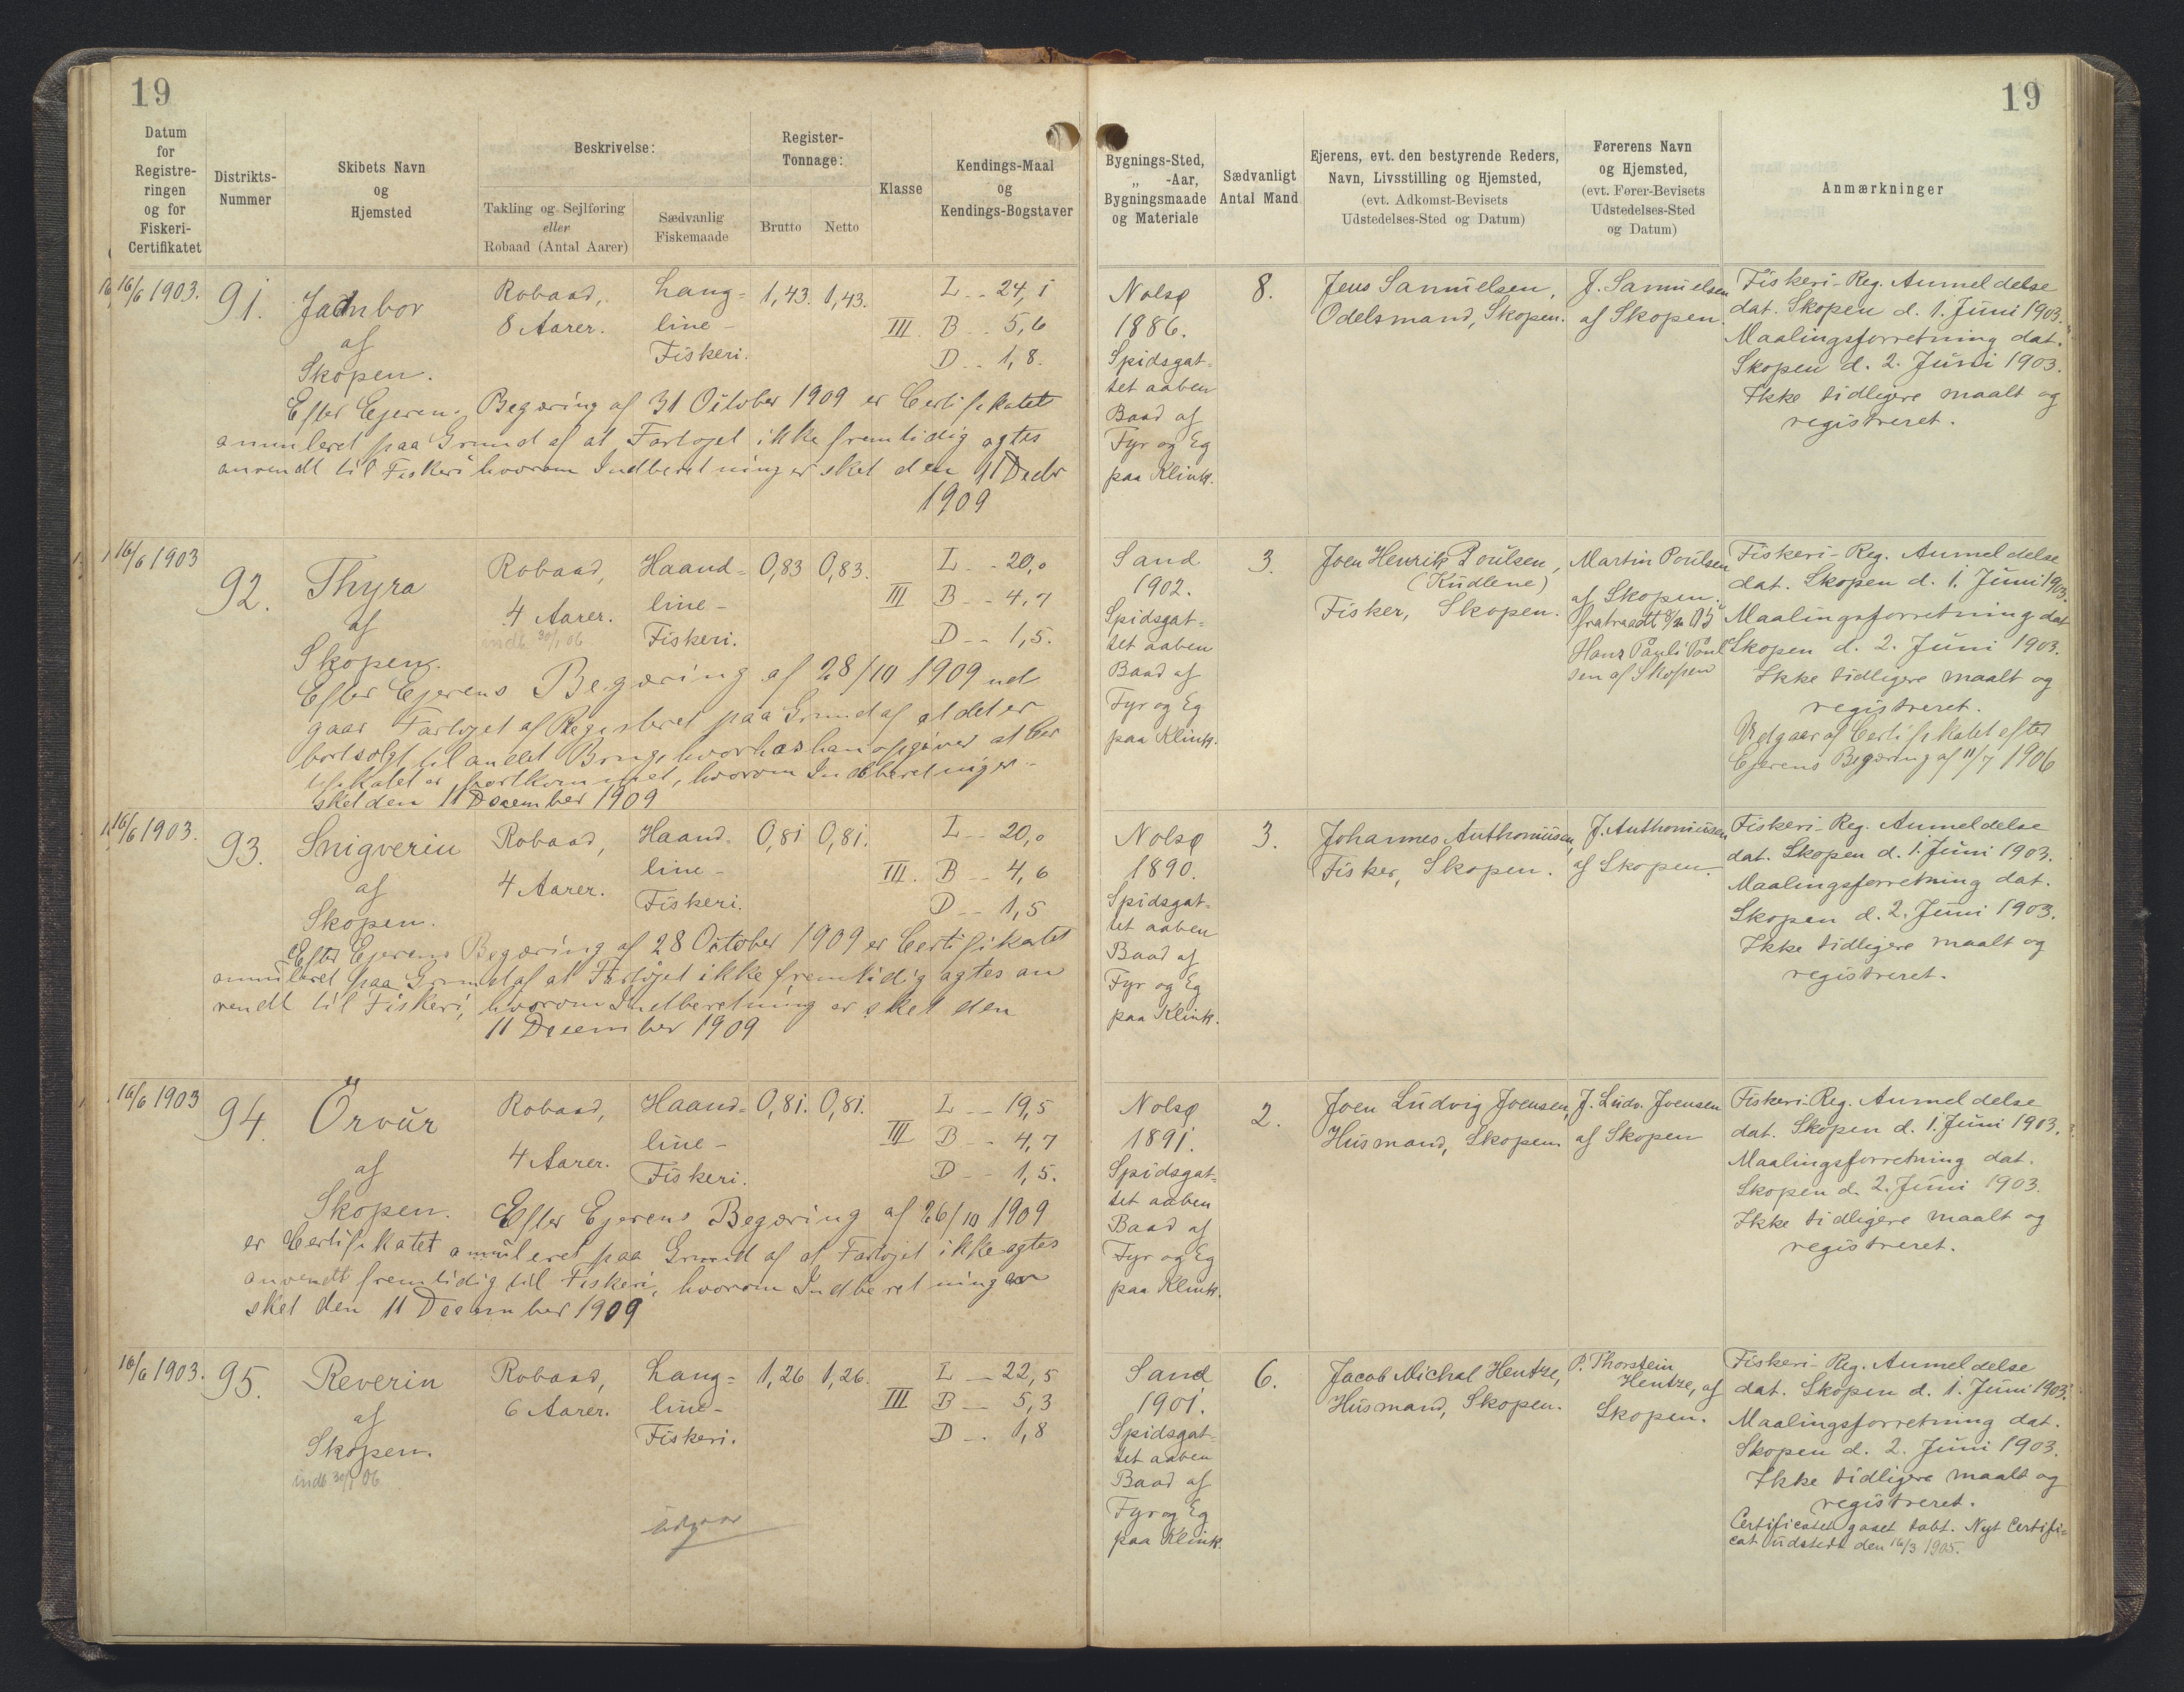 19
19
Datum
for
Registre-
ringen
og for
Fiskeri-
Certifikatet
Distrikts-
Nummer
Skibets Navn
og
Hjemsted
Beskrivelse:
Takling og Sejlføring
eller
Robaad (Antal Aarer)
Sædvanlig
Fiskemaade
Register-
Tonnage:
Brutto
Netto
Klasse
Kendings-Maal
og
Kendings-Bogstaver
Bygnings-Sted,
„ -Aar,
Bygningsmaade
og Materiale
Sædvanligt
Antal Mand
Ejerens, evt. den bestyrende Reders,
Navn, Livsstilling og Hjemsted,
(evt. Adkomst-Bevisets
Udstedelses-Sted og Datum)
Førerens Navn
og Hjemsted,
(evt. Fører-Bevisets
Udstedelses-Sted
og Datum)
Anmærkninger
16/6 1903.
91.
af
Skopen.
Robaad,
8 Aarer.
Lang=
line-
Fiskeri.
1,43.
1,43.
III.
L -- 24,1
B -- 5,6
D -- 1,8.
Efter Ejerens Begæring af 31 October 1909 er Certifikatet
annuleret paa Grund af at Fartøjet ikke fremtidig agtes
anvendt til Fiskeri hvorom Indberetning er sket den 11 Decbr
1909
Nolsø
1886.
Spidsgat=
tet aaben
Baad af
Fyr og Eg
paa Klink.
8.
Jens Samuelsen,
Odelsmand, Skopen.
J. Samuelsen
af Skopen.
Fiskeri-Reg. Anmeldelse
dat. Skopen d. 1. Juni 1903.
Maalingsforretning dat.
Skopen d. 2. Juni 1903.
Ikke tidligere maalt og
registreret.
16/6 1903
92.
Thyra
af
Skopen.
Robaad,
4 Aarer.
indb 30/1 06
Haand=
line-
Fiskeri.
0,83
0,83.
III
L -- 20,0
B -- 4,7
D -- 1,5.
Efter Ejerens Begæring af 28/10 1909 ud
gaar Fartøjet af Registeret paa Grund af at det er
bortsolgt til andet Brug, hvorhos han opgiver at Cer
tifikatet er bortkommet, hvorom Indberetning er
sket den 11 December 1909
Sand
1902.
Spidsgat=
tet aaben
Baad af
Fyr og Eg
paa Klink.
3.
Joen Henrik Poulsen,
(Kudlene)
Fisker, Skopen.
Martin Poulsen
af Skopen.
Hans Pauli Poul
sen af Skopen
Fiskeri-Reg. Anmeldelse
dat. Skopen d. 1. Juni 1903.
Maalingsforretning dat
Skopen d. 2. Juni 1903.
Ikke tidligere maalt og
registreret.
Udgaar af Certifikatet efter
Ejerens Begæring af 11/7 1906
16/6 1903.
93.
Snigverin
af
Skopen.
Robaad,
4 Aarer.
Haand=
line-
Fiskeri.
0,81
0,81.
III.
L -- 20,0
B -- 4,6
D -- 1,5
Efter Ejerens Begæring af 28 October 1909 er Certifikatet
annuleret paa Grund af at Fartøjet ikke fremtidig agtes an
vendt til Fiskeri, hvorom Indberetning er sket den
11 December 1909
Nolsø
1890.
Spidsgat=
tet aaben
Baad af
Fyr og Eg
paa Klink.
3.
Johannes Anthoniisen,
Fisker, Skopen.
J. Anthoniisen
af Skopen.
Fiskeri-Reg. Anmeldelse
dat. Skopen d. 1. Juni 1903.
Maalingsforretning dat.
Skopen d. 2. Juni 1903.
Ikke tidligere maalt og
registreret.
16/6 1903
94.
Örvur
af
Skopen.
Robaad,
4 Aarer.
Haand=
line-
Fiskeri.
0,81.
0,81.
III
L -- 19,5
B -- 4,7
D -- 1,5.
Efter Ejerens Begæring af 26/10 1909
er Certifikatet annuleret paa Grund af at Fartøjet ikke agtes
anvendt fremtidig til Fiskeri, hvorom Indberetning er
sket den 11 December 1909
Nolsø
1891.
Spidsgat=
tet aaben
Baad af
Fyr og Eg
paa Klink.
2.
Joen Ludvig Joensen,
Husmand, Skopen.
J. Ludv. Joensen
af Skopen
Fiskeri-Reg. Anmeldelse
dat. Skopen d. 1. Juni 1903.
Maalingsforretning dat.
Skopen d. 2. Juni 1903.
Ikke tidligere maalt og
registreret.
16/6 1903.
95.
Reverin
af
Skopen.
indb 30/1 06
Robaad,
6 Aarer.
Lang=
line-
Fiskeri.
udgaar
1,26
1,26.
III
L -- 22,5
B -- 5,3
D -- 1,8
Sand
1901.
Spidsgat=
tet aaben
Baad af
Fyr og Eg
paa Klink.
6.
Jacob Michal Hentze,
Husmand, Skopen.
P. Thorstein
Hentze, af
Skopen.
Fiskeri-Reg. Anmeldelse
dat. Skopen d. 1. Juni 1903.
Maalingsforretning dat.
Skopen d. 2. Juni 1903.
Ikke tidligere maalt og
registreret.
Certificatet gaaet tabt. Nyt Certifi=
cat udstedt den 16/3 1905.